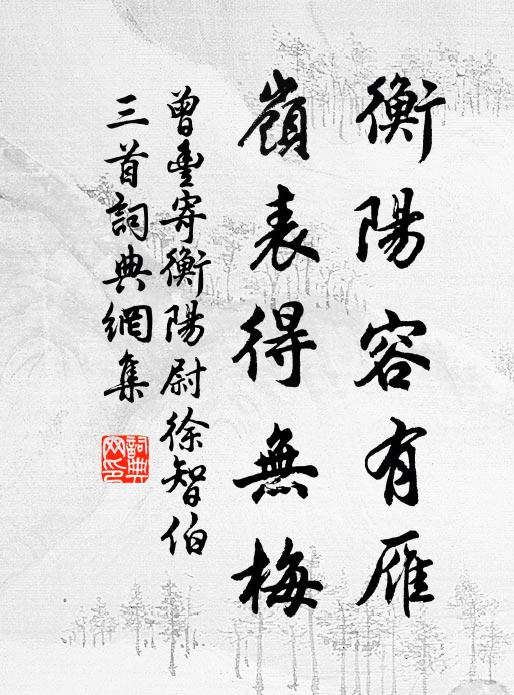 衡陽容有雁
嶺表得無梅
曾豐寄衡陽尉徐智伯
三首詞典網集
詞典網印